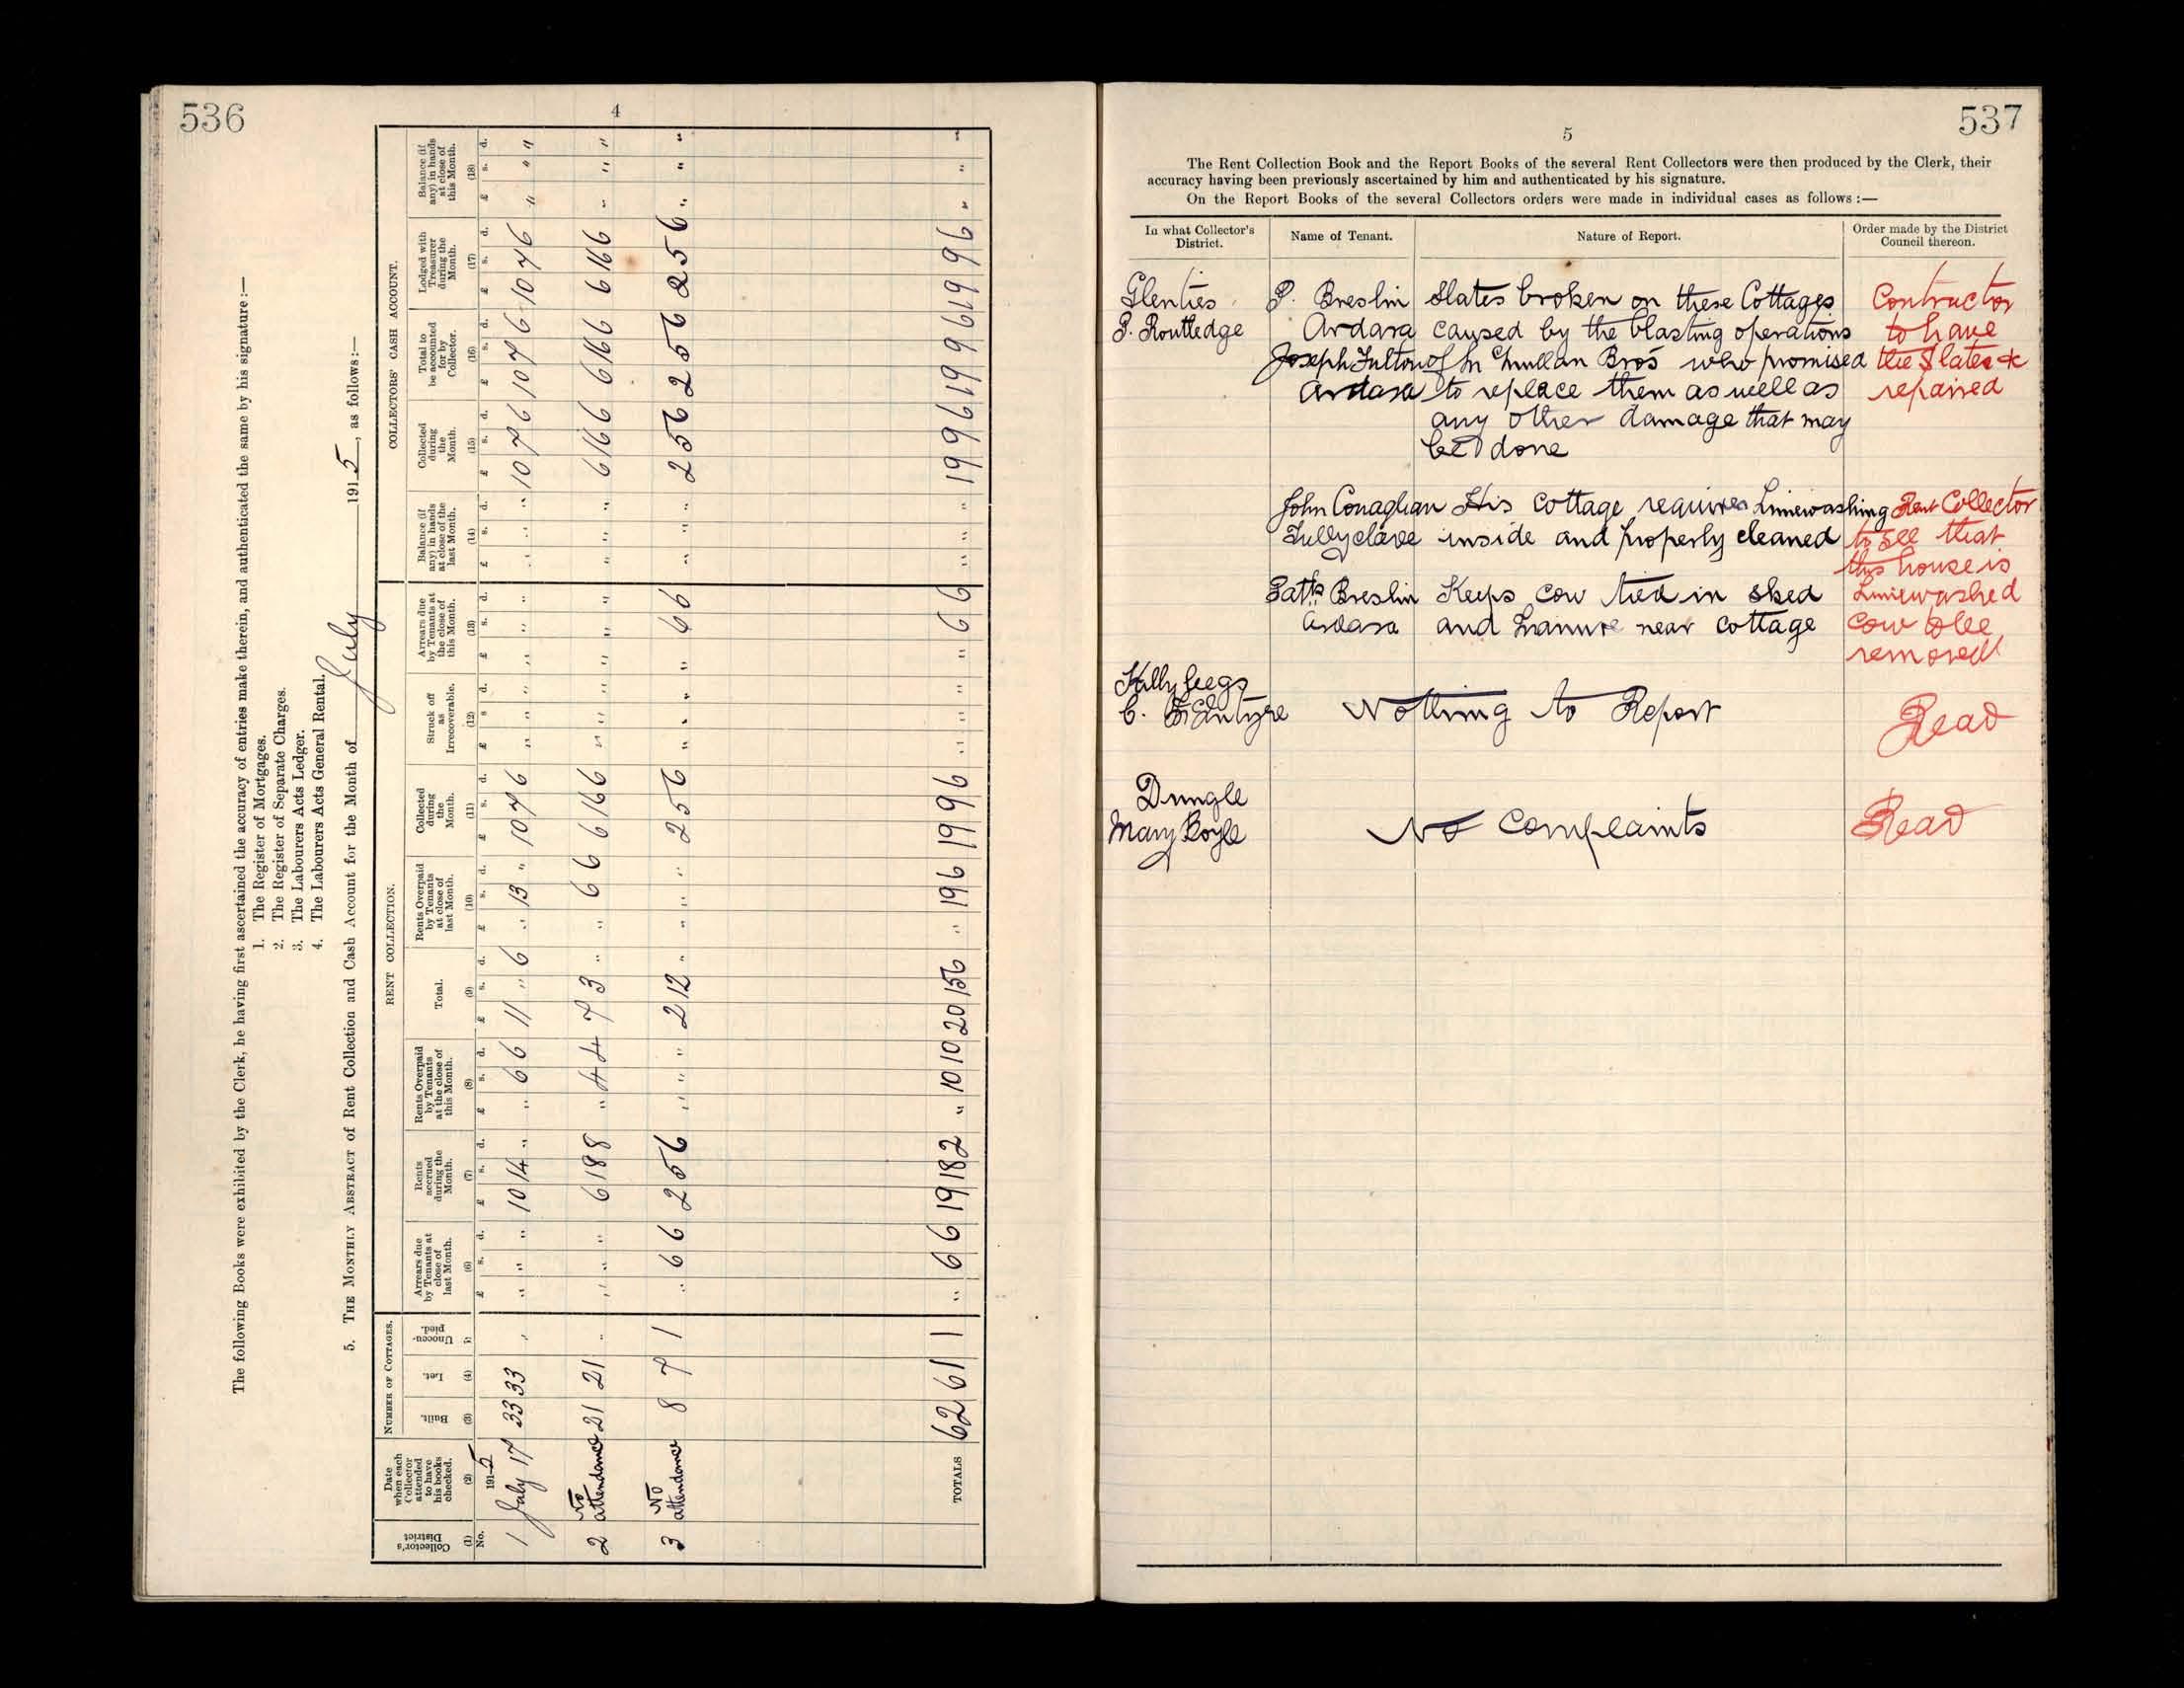 536
4
The following Books were exhibited by the Clerk, he having first ascertained the accuracy of entries make therein, and authenticated the same by his signature :—
1. The Register of Mortgages.
2. The Register of Separate Charges.
3. The Labourers Acts Ledger.
4. The Labourers Acts General Rental.
5. THE MONTHLY ABSTRACT of Rent Collection and Cash Account for the Month of July 1915, as follows :—
NUMBER OF COTTAGES. RENT COLLECTION. COLLECTORS' CASH ACCOUNT.
Collector's District (1) No.
Date when each Collector attended to have his books checked. (2) 1915
Built. (3)
Let. (4)
Unoccu-pied. 5
Arrears due by Tenants at close of last Month. (6) £ s. d.
Rents accrued during the Month. (7) £ s. d.
Rents Overpaid by Tenants at the close of this Month. (8) £ s. d.
Total. (9) £ s. d.
Rents Overpaid by Tenants at close of last Month. (10) £ s. d.
Collected during the Month. (11) £ s. d.
Struck off as Irrecoverable. (12) £ s d.
Arrears due by Tenants at the close of this Month. (13) £ s. d.
Balance (if any) in hands at close of the last Month. (14) £ s. d.
Collected during the Month. (15) £ s. d.
Total to be accounted for by Collector. (16) £ s. d.
Lodged with Treasurer during the Month. (17) £ s. d.
Balance (if any) in hands at close of this Month. (18) £ s. d.
1 July 17 33 33 " " " " 10 14 " " 6 6 11 " 6 " 13 " 10 7 6 " " " " " " " " " 10 7 6 10 7 6 10 7 6 " " "
2 No attendance 21 21 " " " " 6 18 8 " 4 4 7 3 " " 6 6 6 16 6 " " " " " " " " " 6 16 6 6 16 6 6 16 6 " " "
3 No attendance 8 7 1 " 6 6 2 5 6 " " " 2 12 " " " " 2 5 6 " " " " 6 6 " " " 2 5 6 2 5 6 2 5 6 " " "
TOTALS 62 61 1 " 6 6 19 18 2 " 10 10 20 15 6 " 19 6 19 9 6 " " " " 6 6 " " " 19 9 6 19 9 6 19 9 6 " " "
537
5
The Rent Collection Book and the Report Books of the several Rent Collectors were then produced by the Clerk, their
accuracy having been previously ascertained by him and authenticated by his signature.
On the Report Books of the several Collectors orders were made in individual cases as follows :—
In what Collector's District. Name of Tenant. Nature of Report. Order made by the District Council thereon.
Glenties P. Breslin Slates broken on these Cottages Contractor
P. Routledge Ardara caused by the blasting operations to have
Joseph Fulton of McMullan Bros who promised the Slates
Ardara to replace them as well as repaired
any other damage that may
be done
John Conaghan His cottage requires Limewashing Rent Collector
Tullyclave inside and properly cleaned to see that
this house is
Patk Breslin Keeps cow tied in shed Limewashed
Ardara and manure near cottage Cow to be
removed
Killybegs
C. McIntyre Nothing to Report Read
Dungloe
Mary Boyle No Complaints Read